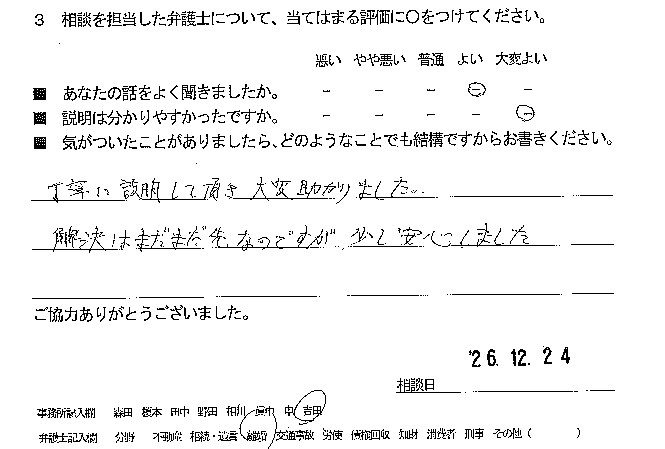 3 相談を担当した弁護士について、当てはまる評価に〇をつけてください。
悪い やや悪い 普通 よい 大変よい
■ あなたの話をよく聞きましたか。 - - - - -
■ 説明は分かりやすかったですか。 - - - - -
■ 気がついたことがありましたら、どのようなことでも結構ですからお書きください。
丁寧に説明して頂き大変助かりました。
解決はまだまだ先なのですが、少し安心しました
ご協力ありがとうございました。
相談日 '26.12.24
事務所記入欄 森田 榎本 田中 野田 相川 中 吉田
弁護士記入欄 分野 不動産 相続・遺言 離婚 交通事故 労使 債権回収 知財 消費者 刑事 その他 ( )